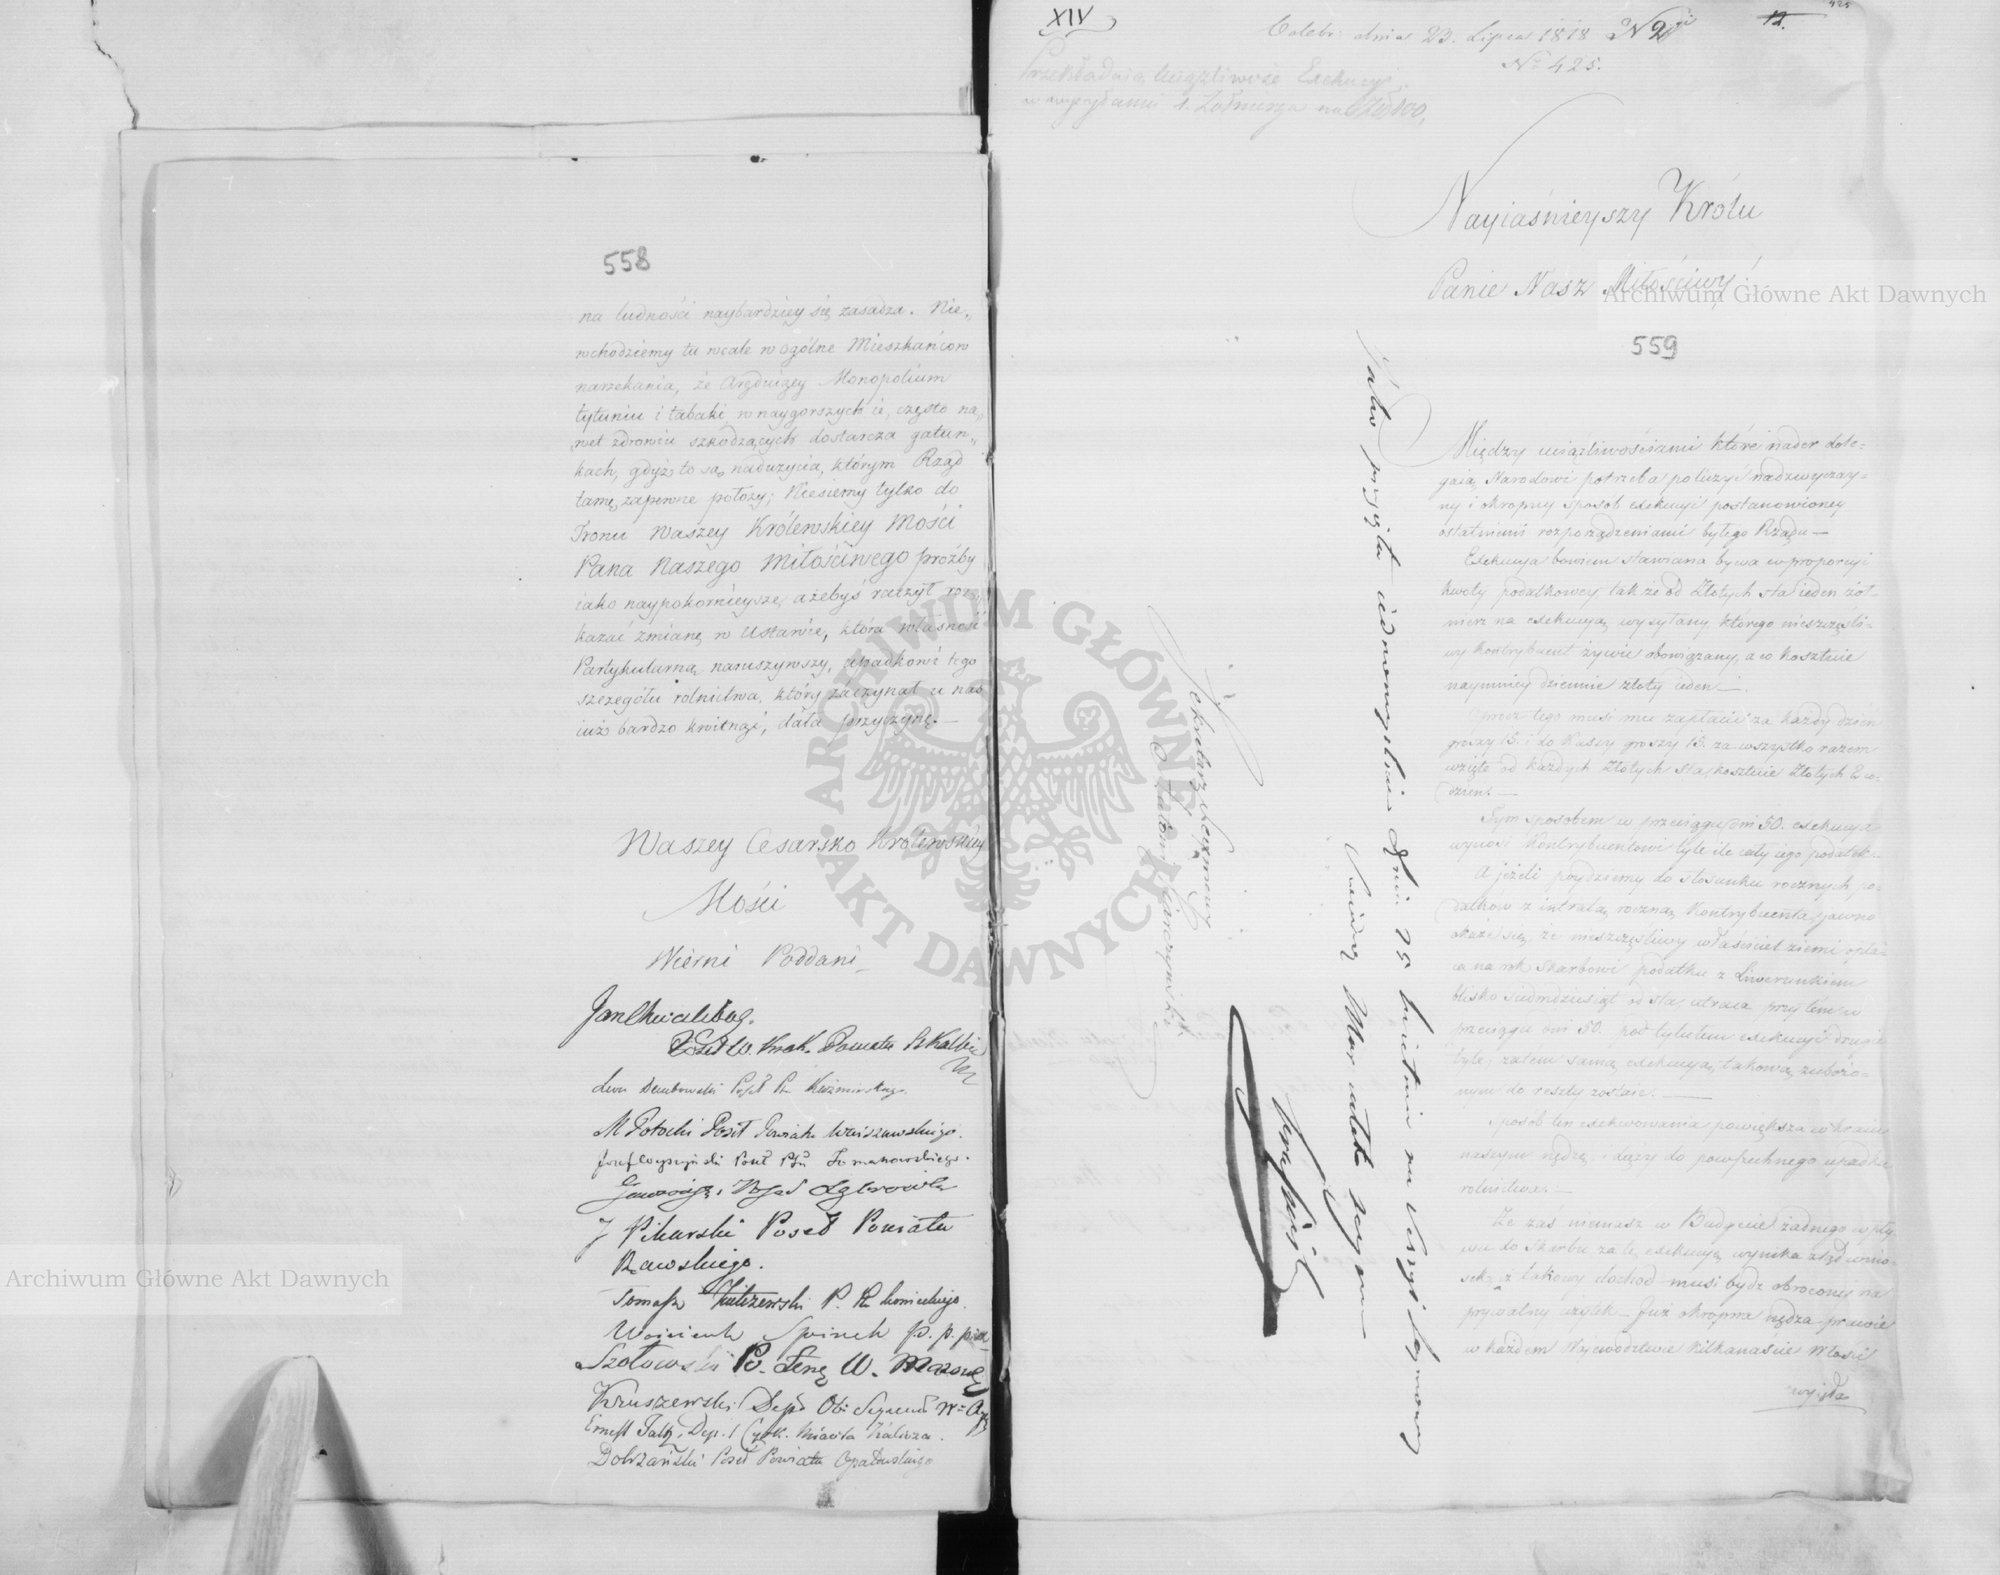 558
na ludności naybardziey się zasadza. Nie„
wchodziemy tu wcale w ogólne Mieszkańcow
narzekania, że Monopolium
tytuniu i tabaki, w naygorszych ie, często na„
wet zdrowiu szkodzących dostarcza gatun„
kach, gdyż to są nadużycia, którym Rząd
tamę zapewne położy; Niesiemy tylko do
Tronu Waszey Królewskiey Mości
Pana Naszego Miłościwego prożby
iako naypokornieysze, ażebyś raczył roz„
kazać zmianę w Ustawie, która własność
Partykularną naruszywszy, upadkowi tego
szczegółu rolnictwa, który zaczynał u nas
iuż bardzo kwitnąć, dała przyczynę.—
Waszey Cesarsko Królewskiey
Mości
Wierni Poddani
Jan Chwalibog.
W. Krak. Powiatu Skalbm
Leon Dembowski Poseł Kazimirsky.
M Potocki Poseł Powiatu Warszawskiego.
Poseł
J Pikarski Poseł Powiatu
Rawskiego.
Tomasz P.
Woyciech
Szołowski Po. Łenę W. Mazowy
Kruszewski Dep
Ernest Faltz, Dep. Miasta Kalisza.
Dobrzański Poseł Powiatu Opatowskiego
XIV
dnia 23. Lipca 1818 N 2gi
12.
425
Nº 425.
Przekładaią Uciążliwość Exekucyi,
w wysyłaniu 1. Żołnierza na Złł 100,
Nayiaśnieyszy Królu
Panie Nasz Miłościwy!
559
Między uciążliwościami które nader dole=
gaią Narodowi potrzeba policzyć nadzwyczay=
ny i okropny sposób exekucyi postanowioney
ostatniemi rozporządzeniami byłego Rządu—
Exekucya bowiem stawiana bywa w proporcyi
kwoty podatkowey tak że od Złotych sta ieden żoł=
nierz na exekucyą wysyłany, którego nieszczęśli=
wy Kontrybuent żywić obowiązany, a to kosztuie
naymniey dziennie złoty ieden—.
Oprocz tego musi mu zapłacić za każdy dzień
groszy 15. i do Kassy groszy 15. za wszystko razem
wzięte od każdych Złotych sta, kosztuie Złotych 2 co=
dzien.—
Tym sposobem w przeciągu dni 50. exekucya
wynosi Kontrybuentowi tyle ile cały iego podatek.
A jeżeli poydziemy do stosunku rocznych po=
datkow z intratą roczną Kontrybuenta, jawno
okaże się, że nieszczęśliwy właściciel ziemi opła=
ca na rok Skarbowi podatku z Liwerunkiem
blisko siedmdziesiąt od sta, utraca przytem w
przeciągu dni 50. pod tytułem exekucyi drugie
tyle, zatem samą exekucyą takową zubożo=
nym do reszty zostaie.—
Sposób ten exekwowania powiększa w kraiu
naszym nędzę i dąży do powszechnego upadku
rolnictwa.—
Że zaś niemasz w Budgecie żadnego wpły
wu do Skarbu za tę exekucyą wynika ztąd wnio=
sek iż takowy dochod musi bydz obrocony na
prywatny użytek— Już okropna nędza prawie
w każdem Woiewodztwie kilkanaście Włosci
Jako przyięta iednomyślnie dnia 25 kwietnia na Sessyi Seymowey
świadczy Marszałek Seymu
Sekretarz Seymowy
Archiwum Główne Akt Dawnych
Archiwum Główne Akt Dawnych
ARCHIWUM GŁÓWNE AKT DAWNYCH